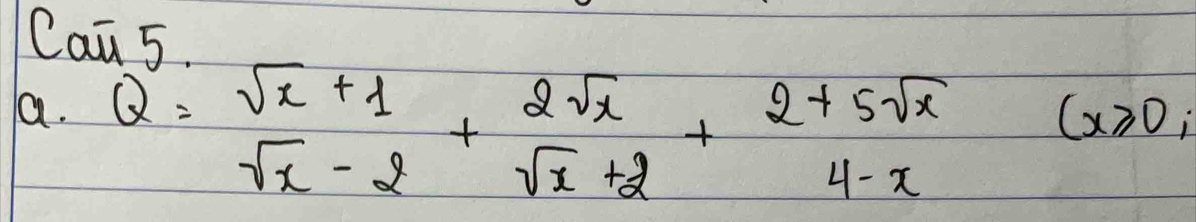 Câu 5.
a. Q = (√x + 1)/(√x - 2) + (2√x)/(√x + 2) + (2 + 5√x)/(4 - x) (x ≥ 0;